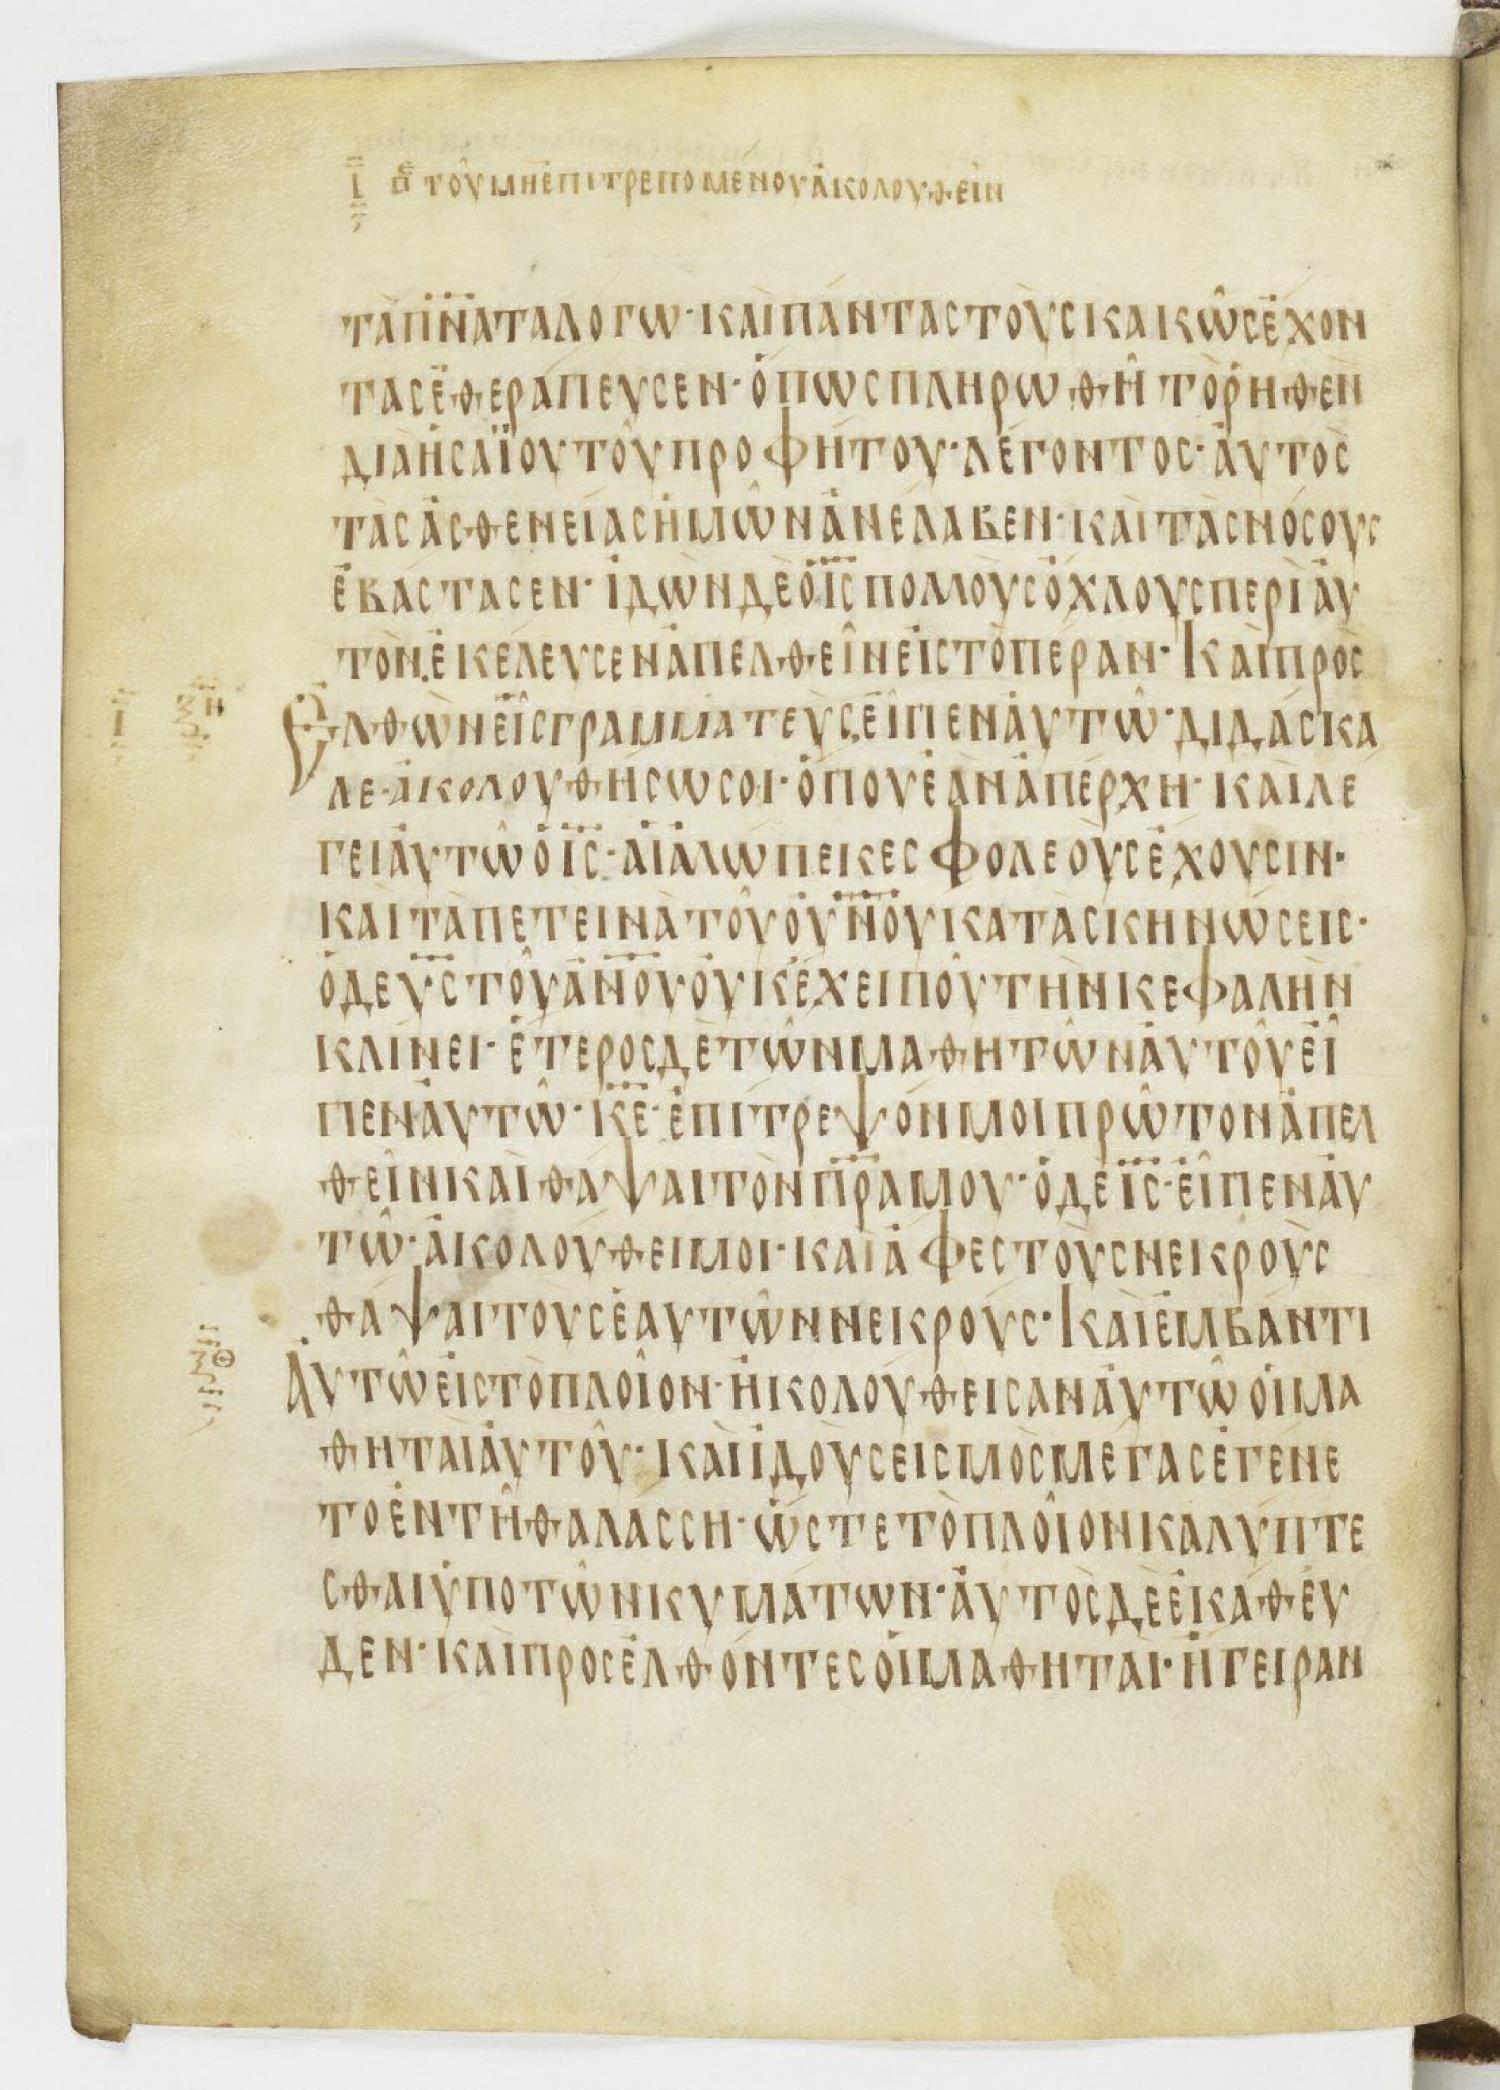 Ι πε τοῦ μὴ ἐπιτρεπομένου ἀκολουθεῖν
ΤᾺΠΝΑΤΑΛΟΓΩ· ΚΑῚΠΆΝΤΑΣΤΟῪΣΚΑΚΩ͂ΣἜΧΟΝ
ΤΑΣἘΘΕΡΆΠΕΥΣΕΝ· ὍΠΩΣΠΛΗΡΩΘΗ͂ΤῸΡΗΘΈΝ
ΔΙΑἨΣΑΪ́ΟΥΤΟΥ͂ΠΡΟΦΉΤΟΥ· ΛΈΓΟΝΤΟΣ· ἈΥΤῸΣ
ΤᾺΣἈΣΘΕΝΕΊΑΣἩΜΩ͂ΝἈΝΈΛΑΒΕΝ· ΚΑῚΤᾺΣΝΌΣΟΥΣ
ἘΒΆΣΤΑΣΕΝ· ἸΔῺΝΔῈὉΙΣΠΟΛΛΟΥΣὌΧΛΟΥΣΠΕΡῚἈΥ
ΤῸΝ. ἘΚΈΛΕΥΣΕΝἈΠΕΛΘΕΙ͂ΝἘΙΣΤῸΠΈΡΑΝ· ΚΑῚΠΡΟΣ
ΕΛΘῺΝἘΙ͂ΣΓΡΑΜΜΑΤΕῪΣ. ἘΙ͂ΠΕΝἈΥΤΩ͂· ΔΙΔΆΣΚΑ
ΛΕ· ἈΚΟΛΟΥΘΉΣΩΣΟΙ· ὍΠΟΥἘᾺΝἈΠΈΡΧΗ· ΚΑῚΛΕ
ΓΕΙἈΥΤΩ͂ὉΙΣ· ἈΙἈΛΩΠΕΚΕΣΦΟΛΕΟῪΣἜΧΟΥΣΙΝ·
ΚΑῚΤᾺΠΕΤΕΙΝᾺΤΟΥ͂ΟΥ̓ΝΟΥΚΑΤΑΣΚΗΝΏΣΕΙΣ·
ὉΔΕΥΣΤΟΥ͂ἈΝΟΥΟΥ̓ΚἜΧΕΙΠΟΥ͂ΤῊΝΚΕΦΑΛῊΝ
ΚΛΊΝΕΙ· ἝΤΕΡΟΣΔῈΤΩ͂ΝΜΑΘΗΤΩ͂ΝἈΥΤΟΥ͂ἘΙ͂
ΠΕΝἈΥΤΩ͂· ΚΕ· ἘΠΊΤΡΕΨΌΝΜΟΙΠΡΩ͂ΤΟΝἈΠΕΛ
ΘΕΙ͂ΝΚΑῚΘΆΨΑΙΤῸΝΠΡΑΜΟΥ· ὉΔΕΙΣ· ἘΙ͂ΠΕΝἈΥ
ΤΩ͂· ἈΚΟΛΟΎΘΕΙΜΟΙ· ΚΑῚἈΦΕΣΤΟῪΣΝΕΚΡΟῪΣ
ΘΆΨΑΙΤΟΥΣἙΑΥΤΩ͂ΝΝΕΚΡΟΥΣ· ΚΑῚἘΜΒΆΝΤΙ
ἈΥΤΩ͂ἘΙΣΤῸΠΛΟΙ͂ΟΝ· ἨΚΟΛΟΎΘΕΙΣΑΝἈΥΤΩ͂ὉΙΜΑ
ΘΗΤΑῚἈΥΤΟΥ͂· ΚΑῚἸΔΟῪΣΕΙΣΜῸΣΜΕΓΑΣἘΓΈΝΕ
ΤΟἘΝΤΗ͂ΘΑΛΑΣΣΗ· ὭΣΤΕΤῸΠΛΟΙ͂ΟΝΚΑΛΎΠΤΕ
ΣΘΑΙὙΠΟΤΩ͂ΝΚΥΜΆΤΩΝ· ἈΥΤῸΣΔῈἘΚΆΘΕΥ
ΔΕΝ· ΚΑῚΠΡΟΣΕΛΘΌΝΤΕΣὉΙΜΑΘΗΤΑῚ· ἬΓΕΙΡΑΝ